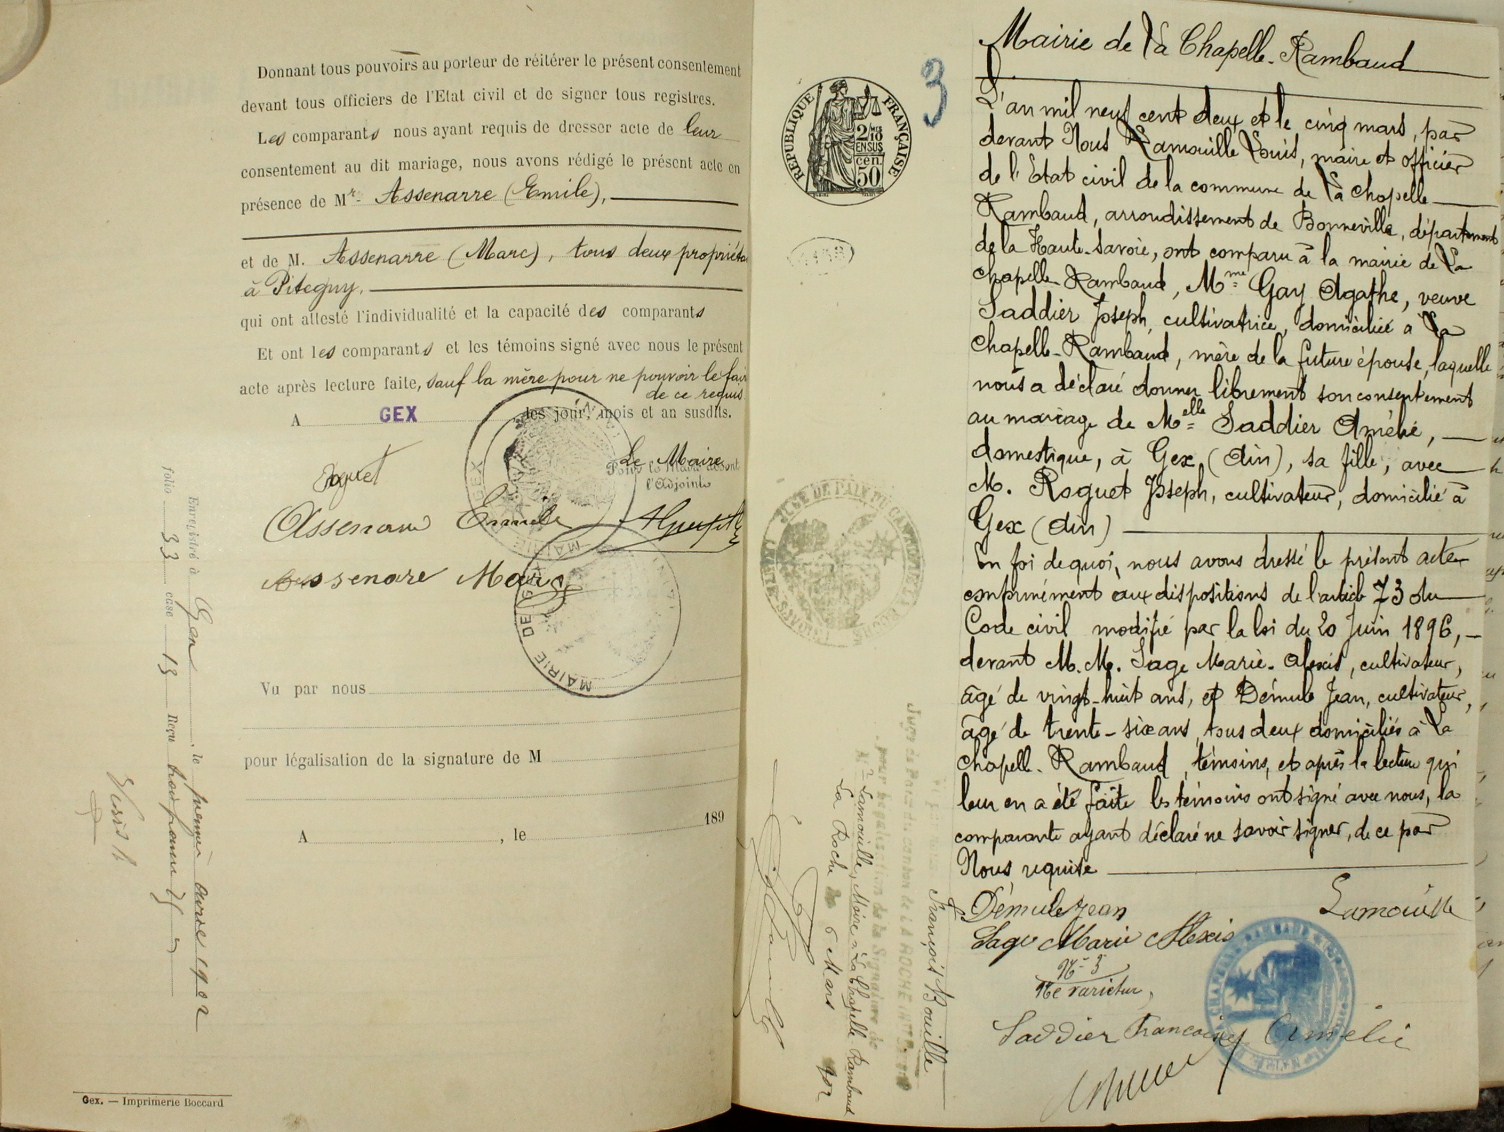 Donnant tous pouvoirs au porteur de réitérer le présent consentement
devant tous officiers de l'Etat civil et de signer tous registres.
Les comparants nous ayant requis de dresser acte de leur
consentement au dit mariage, nous avons rédigé le présent acte en
présence de Mr. Assenarre (Emile),
et de M. Assenarre (Marc), tous deux propriéta
à Pitegny.
qui ont attesté l'individualité et la capacité des comparants
Et ont les comparants et les témoins signé avec nous le présent
acte après lecture faite, sauf la mère pour ne pouvoir le fair
de ce requis
A GEX les jour, mois et an susdits.
Le Maire
l'Adjoint
Roguet
Assenarre Emile
Assenare Marc
MAIRIE DE GEX
Vu par nous
pour légalisation de la signature de M
A , le 189
Enregistré à Gex , le premier avril 1902
folio 33 case 13 Reçu
Gex. — Imprimerie Boccard
3
RÉPUBLIQUE FRANÇAISE
2/10
EN SUS
50 cen.
Mairie de La Chapelle-Rambaud
L'an mil neuf cent deux et le cinq mars, par
devant Nous Lamouille Louis, maire et officier
de l'Etat civil de la commune de La Chapelle
Rambaud, arrondissement de Bonneville, département
de la Haute-Savoie, ont comparu à la mairie de La
Chapelle-Rambaud, Mme Gay Agathe, veuve
Saddier Joseph, cultivatrice, domiciliée à La
Chapelle-Rambaud, mère de la future épouse, laquelle
nous a déclaré donner librement son consentement
au mariage de Melle Saddier Amélie,
domestique, à Gex (Ain), sa fille, avec
M. Roguet Joseph, cultivateur, domicilié à
Gex (Ain)
En foi de quoi, nous avons dressé le présent acte
conformément aux dispositions de l'article 73 du
Code civil modifié par la loi du 20 Juin 1896,
devant M.M. Sage Marie-Alexis, cultivateur,
âgé de vingt-huit ans, et Démule Jean, cultivateur,
âgé de trente-six ans, tous deux domiciliés à La
Chapelle-Rambaud, témoins, et après la lecture qui
leur en a été faite les témoins ont signé avec nous, la
comparante ayant déclaré ne savoir signer, de ce par
Nous requise
Démule Jean Lamouille
Sage Marie Alexis
No 3
Ne varietur,
Saddier Françoise Amélie
François Bouille
pour légalisation de la Signature de
Mr Lamouille, Maire à La Chapelle Rambaud
La Roche le 6 Mars 1902